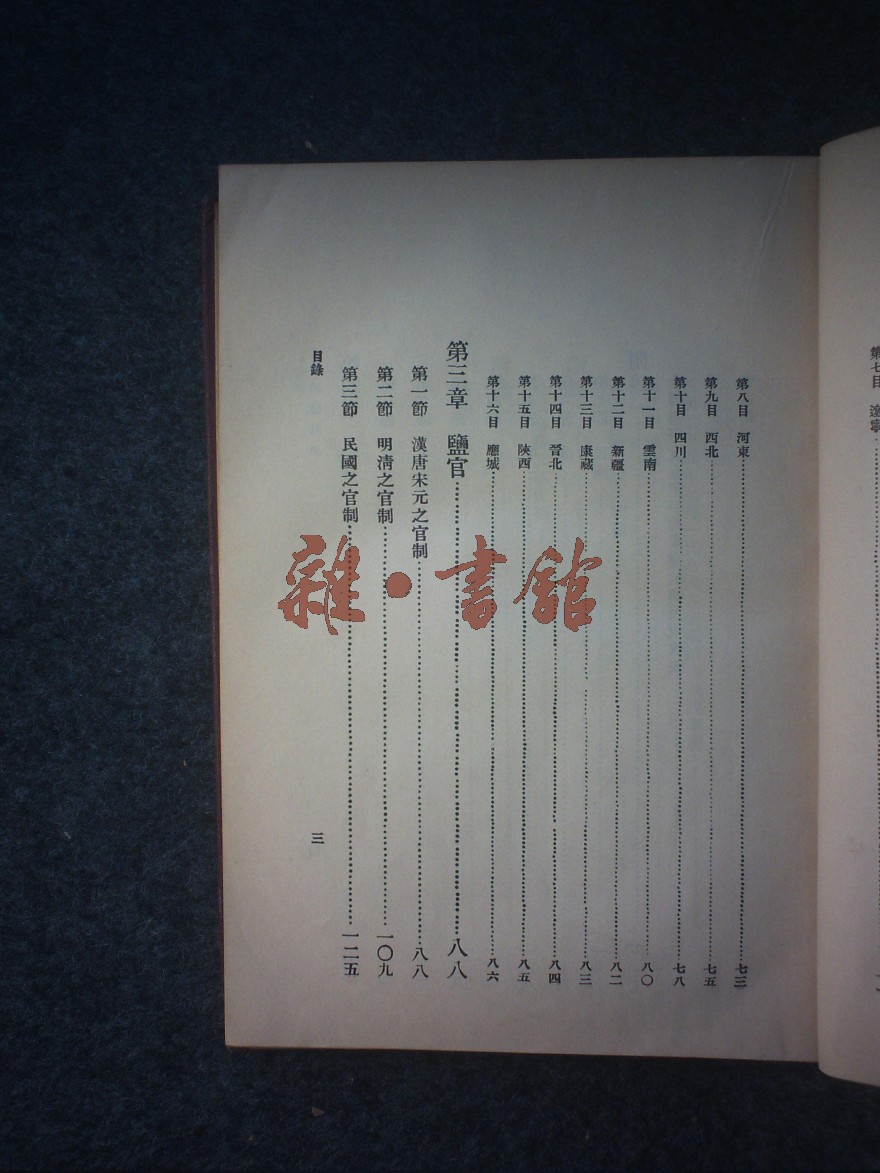 第七目　遼寧
第八目　河東……七三
第九目　西北……七五
第十目　四川……七八
第十一目　雲南……八〇
第十二目　新疆……八二
第十三目　康藏……八三
第十四目　晉北……八四
第十五目　陝西……八五
第十六目　應城……八六
第三章　鹽官……八八
第一節　漢唐宋元之官制……八八
第二節　明清之官制……一〇九
第三節　民國之官制……一二五
目錄
三
雜·書館